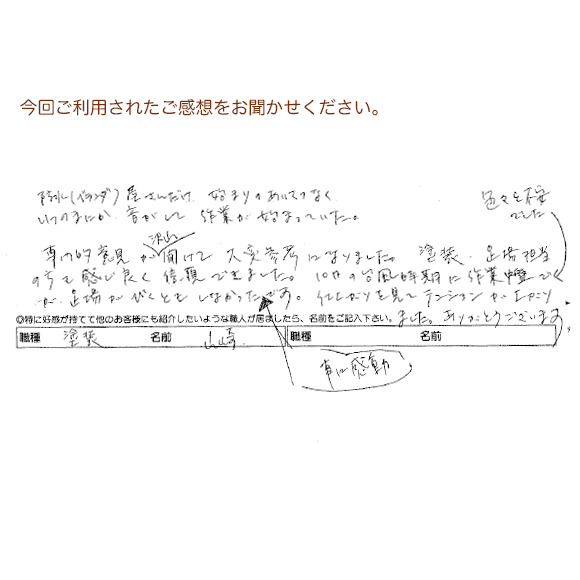 今回ご利用されたご感想をお聞かせください。
防水(ベランダ)屋さんだけ 始まりのあいさつなく
いつのまにか 音がして 作業が始まっていた。
色々と不安
でした
沢山
専門的意見が聞けて 大変参考になりました。 塗装、足場担当
の方で感じ良く信頼できました。 10月の台風時期に作業中
が、足場がびくともしなかったです。 仕上がりを見てテンションが上がり
ました。ありがとうございます。
◎特に好感が持てて他のお客様にも紹介したいような職人が居ましたら、名前をご記入下さい。
職種 塗装 名前 山崎 職種 名前
事に感動